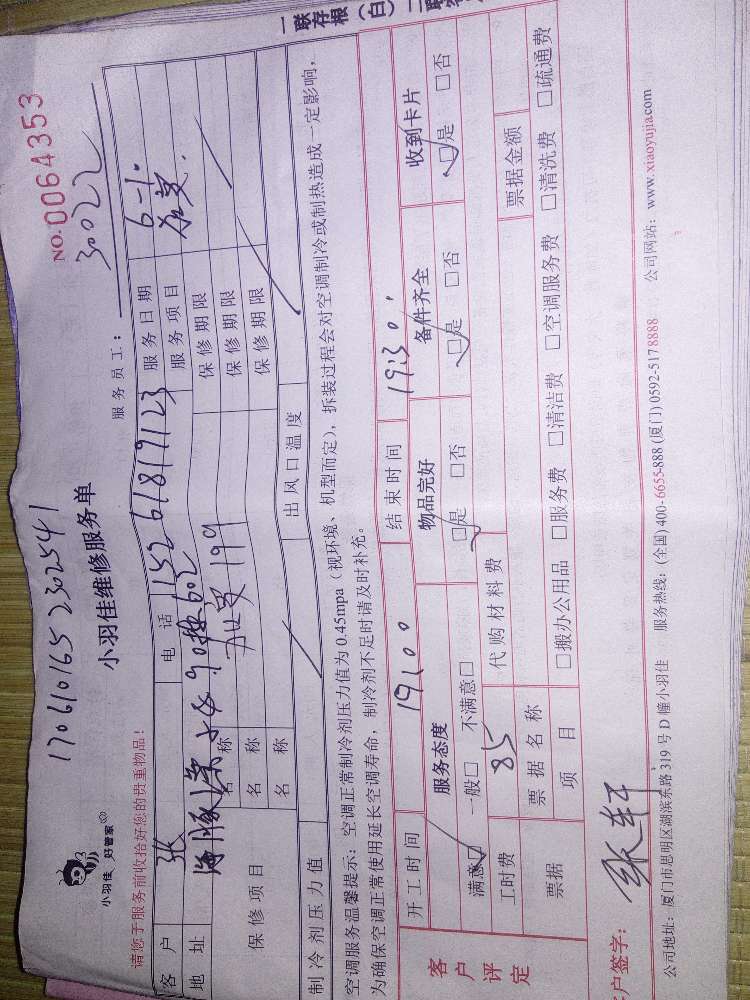 一联存根(白)二联
NO.0064353
170610165230254​1
30022
小羽佳 好管家
小羽佳维修服务单
服务员工:
请您于服务前收拾好您的贵重物品!
客户 张 电话 15261819123 服务日期 6-1.
地址 602 服务项目 加
保修项目 名称 199 保修期限
名称 保修期限
名称 保修期限
制冷剂压力值 出风口温度
空调服务温馨提示:空调正常制冷剂压力值为0.45mpa(视环境、机型而定),拆装过程会对空调制冷或制热造成一定影响,
为确保空调正常使用延长空调寿命,制冷剂不足时请及时补充。
客户评定
开工时间 19:00 结束时间 19:30
服务态度 物品完好 备件齐全 收到卡片
满意□ 一般□ 不满意□ □是 □否 □是 □否 □是 □否
工时费 85 代购材料费
票据 票据名称 票据金额
项目 □搬办公用品 □服务费 □清洁费 □空调服务费 □清洗费 □疏通费
客户签字: 张轩
公司地址:厦门市思明区湖滨东路319号D幢小羽佳 服务热线:(全国)400-6655-888(厦门)0592-5178888 公司网站:www.xiaoyujia.com